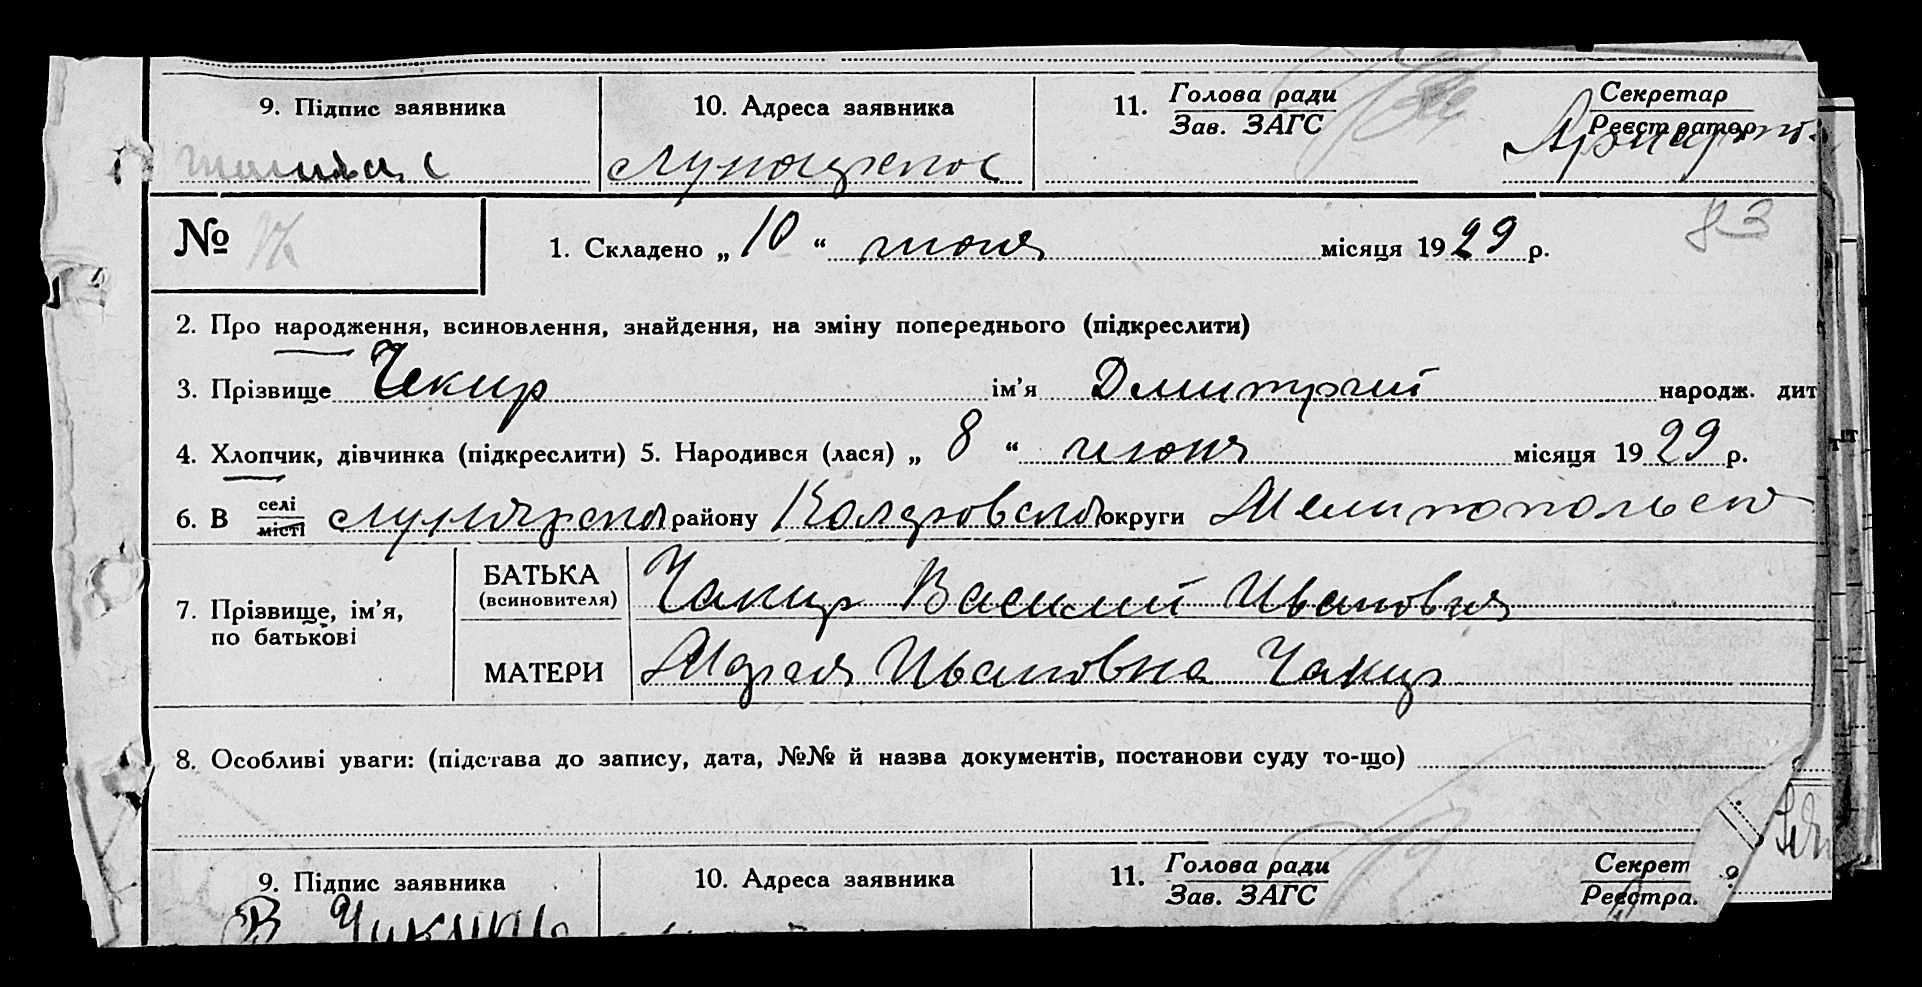 9. Підпис заявника 10. Адреса заявника 11. Голова ради Секретар
Зав. ЗАГС Реєстратор
№ 1. Складено „ 10 “ июня місяця 1929 р. 83
2. Про народження, всиновлення, знайдення, на зміну попереднього (підкреслити)
3. Прізвище Чекир ім’я Дмитрий народж. дит
4. Хлопчик, дівчинка (підкреслити) 5. Народився (лася) „ 8 “ июня місяця 1929 р.
6. В селі
місті району округи Мелитопольск
7. Прізвище, ім’я, по батькові
БАТЬКА (всиновителя) Чакир Василий Иванович
МАТЕРИ Мария Ивановна Чакир
8. Особливі уваги: (підстава до запису, дата, №№ й назва документів, постанови суду то-що)
9. Підпис заявника 10. Адреса заявника 11. Голова ради Секрет
Зав. ЗАГС Реєстра.